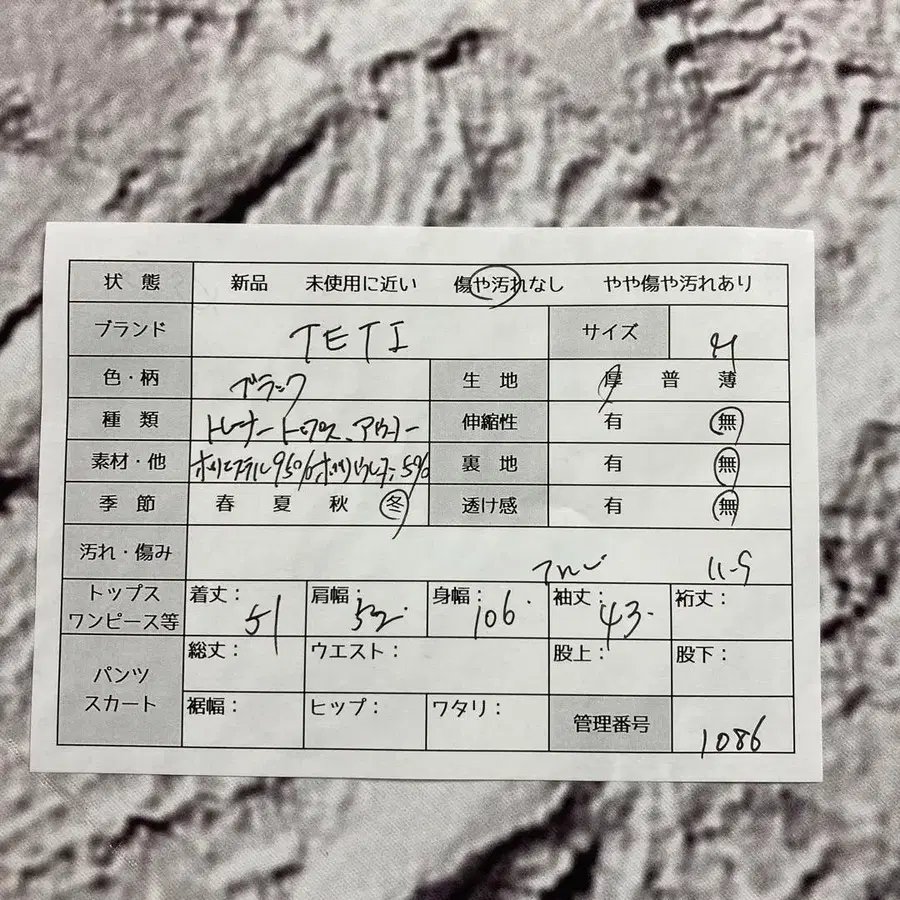 状態 新品 未使用に近い 傷や汚れなし やや傷や汚れあり
ブランド TETI サイズ M
色・柄 ブラック 生地 厚 普 薄
種類 トレーナー トップス、アウター 伸縮性 有 無
素材・他 ポリエステル95%ポリウレタン5% 裏地 有 無
季節 春 夏 秋 冬 透け感 有 無
汚れ・傷み
11-9
トップス ワンピース等 着丈: 51 肩幅: 52 身幅: 106 袖丈: 43 裄丈:
パンツ スカート 総丈: ウエスト: 股上: 股下:
裾幅: ヒップ: ワタリ: 管理番号 1086